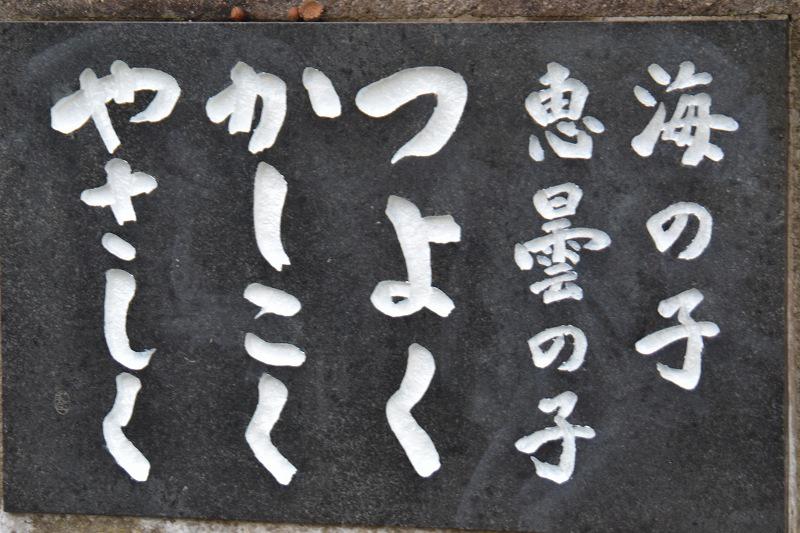 海の子
恵曇の子
つよく
かしこく
やさしく